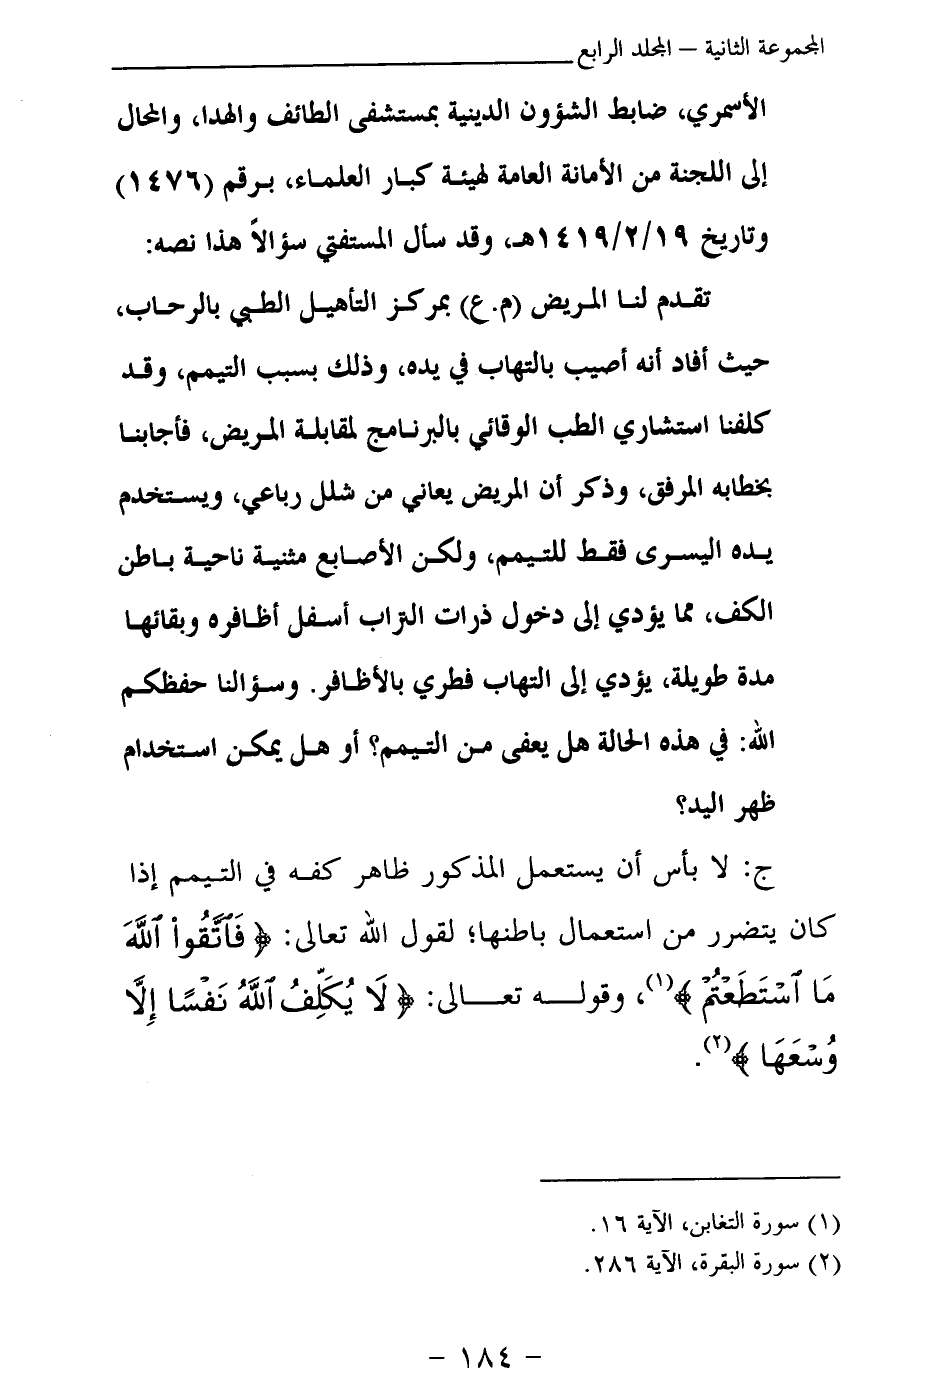 المجموعة الثانية – المجلد الرابع
الأسمري، ضابط الشؤون الدينية بمستشفى الطائف والهدا، والمحال
إلى اللجنة من الأمانة العامة لهيئة كبار العلماء، برقم (١٤٧٦)
وتاريخ ١٤١٩/٢/١٩هـ، وقد سأل المستفتي سؤالاً هذا نصه:
تقدم لنا المريض (م.ع) بمركز التأهيل الطبي بالرحاب،
حيث أفاد أنه أصيب بالتهاب في يده، وذلك بسبب التيمم، وقد
كلفنا استشاري الطب الوقائي بالبرنامج لمقابلة المريض، فأجابنا
بخطابه المرفق، وذكر أن المريض يعاني من شلل رباعي، ويستخدم
يده اليسرى فقط للتيمم، ولكن الأصابع مثنية ناحية باطن
الكف، مما يؤدي إلى دخول ذرات التراب أسفل أظافره وبقائها
مدة طويلة، يؤدي إلى التهاب فطري بالأظافر. وسؤالنا حفظكم
الله: في هذه الحالة هل يعفى من التيمم؟ أو هل يمكن استخدام
ظهر اليد؟
ج: لا بأس أن يستعمل المذكور ظاهر كفه في التيمم إذا
كان يتضرر من استعمال باطنها؛ لقول الله تعالى: ﴿ فَٱتَّقُوا۟ ٱللَّهَ
مَا ٱسْتَطَعْتُمْ ﴾(١)، وقوله تعالى: ﴿ لَا يُكَلِّفُ ٱللَّهُ نَفْسًا إِلَّا
وُسْعَهَا ﴾(٢).
(١) سورة التغابن، الآية ١٦.
(٢) سورة البقرة، الآية ٢٨٦.
– ١٨٤ –